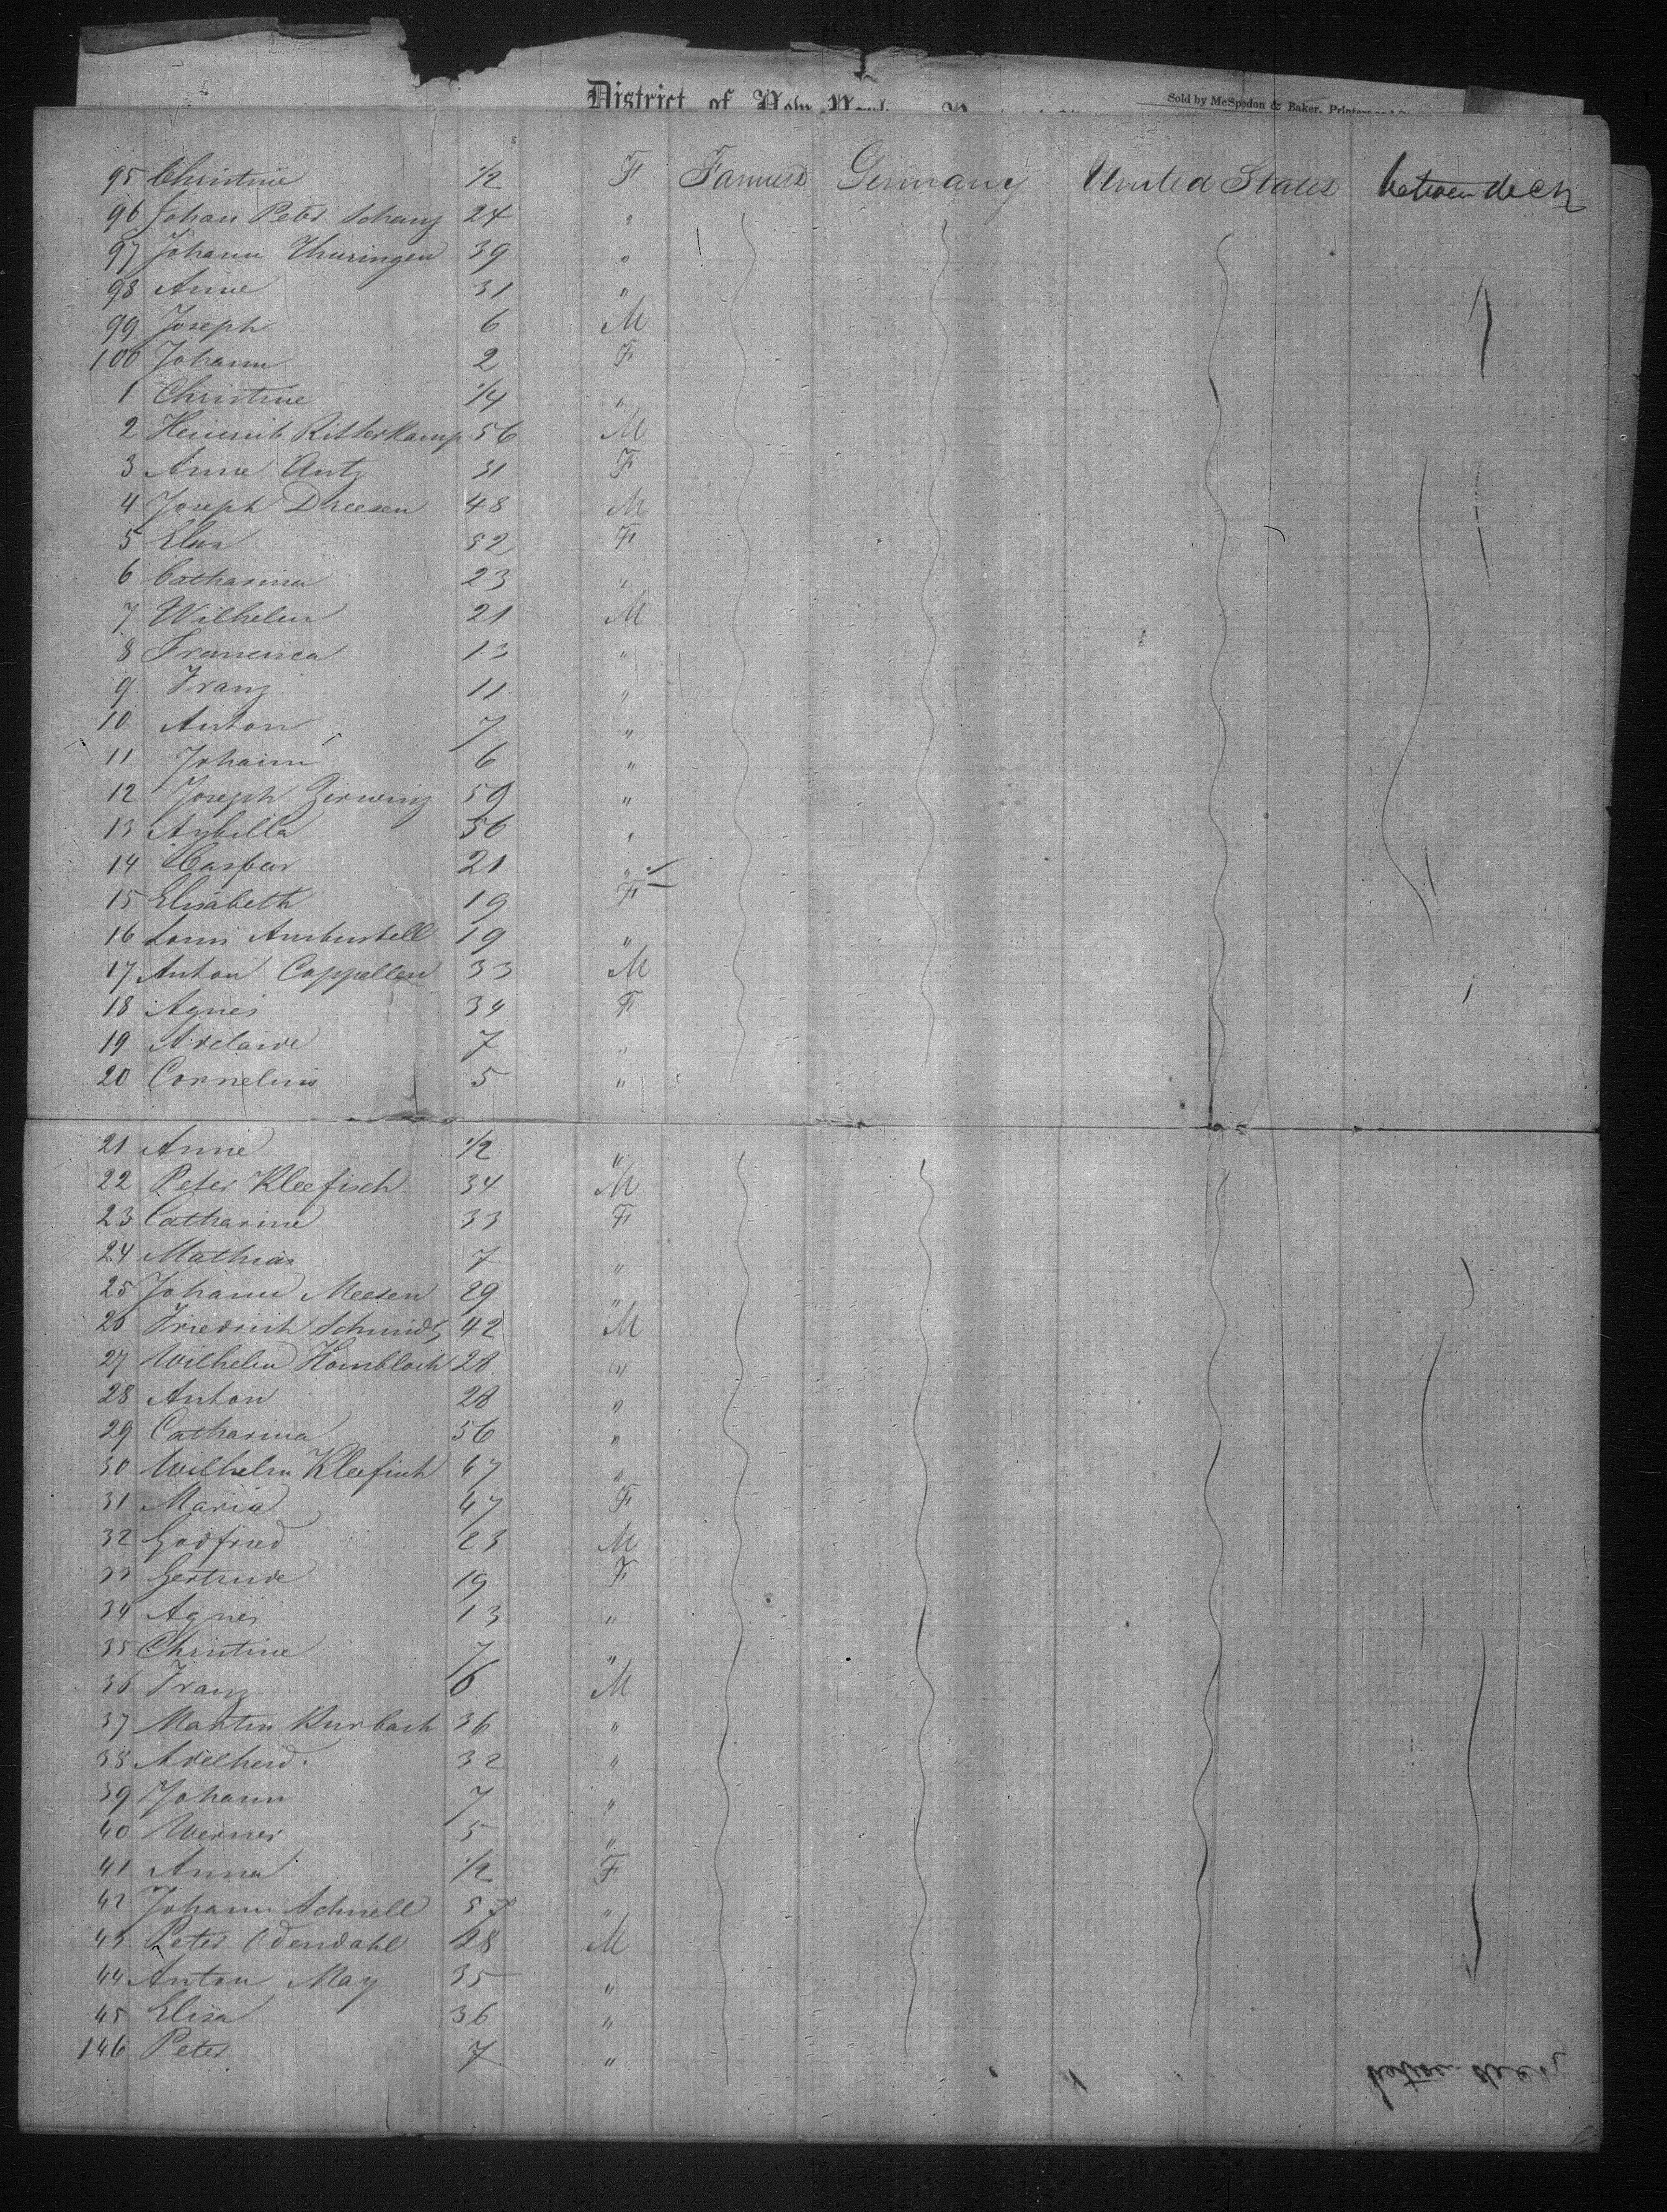 District of New York
Sold by McSpedon & Baker, Printers and
95 Christine 1/2 F Farmers Germany United States between deck
96 Johan Peter Schanz 24 "
97 Johann Thuringen 39 "
98 Anne 31 "
99 Joseph 6 M
100 Johann 2 F
1 Christine 1/4 "
2 Heinrich Ritterkamp 56 M
3 Anna Antz 31 F
4 Joseph Dreesen 48 M
5 Elisa 52 F
6 Catharina 23 "
7 Wilhelm 21 M
8 Francisca 13 "
9 Franz 11 "
10 Anton 7 "
11 Johann 6 "
12 Joseph 59 "
13 Sybilla 56 "
14 Caspar 21 "
15 Elisabeth 19 F
16 Louis 19 "
17 Anton Cappellen 33 M
18 Agnes 34 F
19 Adelaide 7 "
20 Cornelius 5 "
21 Anne 1/2 "
22 Peter Kleefisch 34 M
23 Catharine 33 F
24 Mathias 7 "
25 Johann Meesen 29 "
26 Friedrich Schmidt 42 M
27 Wilhelm Hombloch 28 "
28 Anton 28 "
29 Catharina 56 "
30 Wilhelm Kleefisch 47 "
31 Maria 47 F
32 Godfried 23 M
33 Gertrude 19 F
34 Agnes 13 "
35 Christine 7 "
36 Franz 6 M
37 Martin Kurbach 36 "
38 Adelheid. 32 "
39 Johann 7 "
40 Werner 5 "
41 Anna 1/2 F
42 Johann Schnell "
43 Peter Odendahl 28 M
44 Anton May 35 "
45 Elisa 36 "
146 Peter 7 "